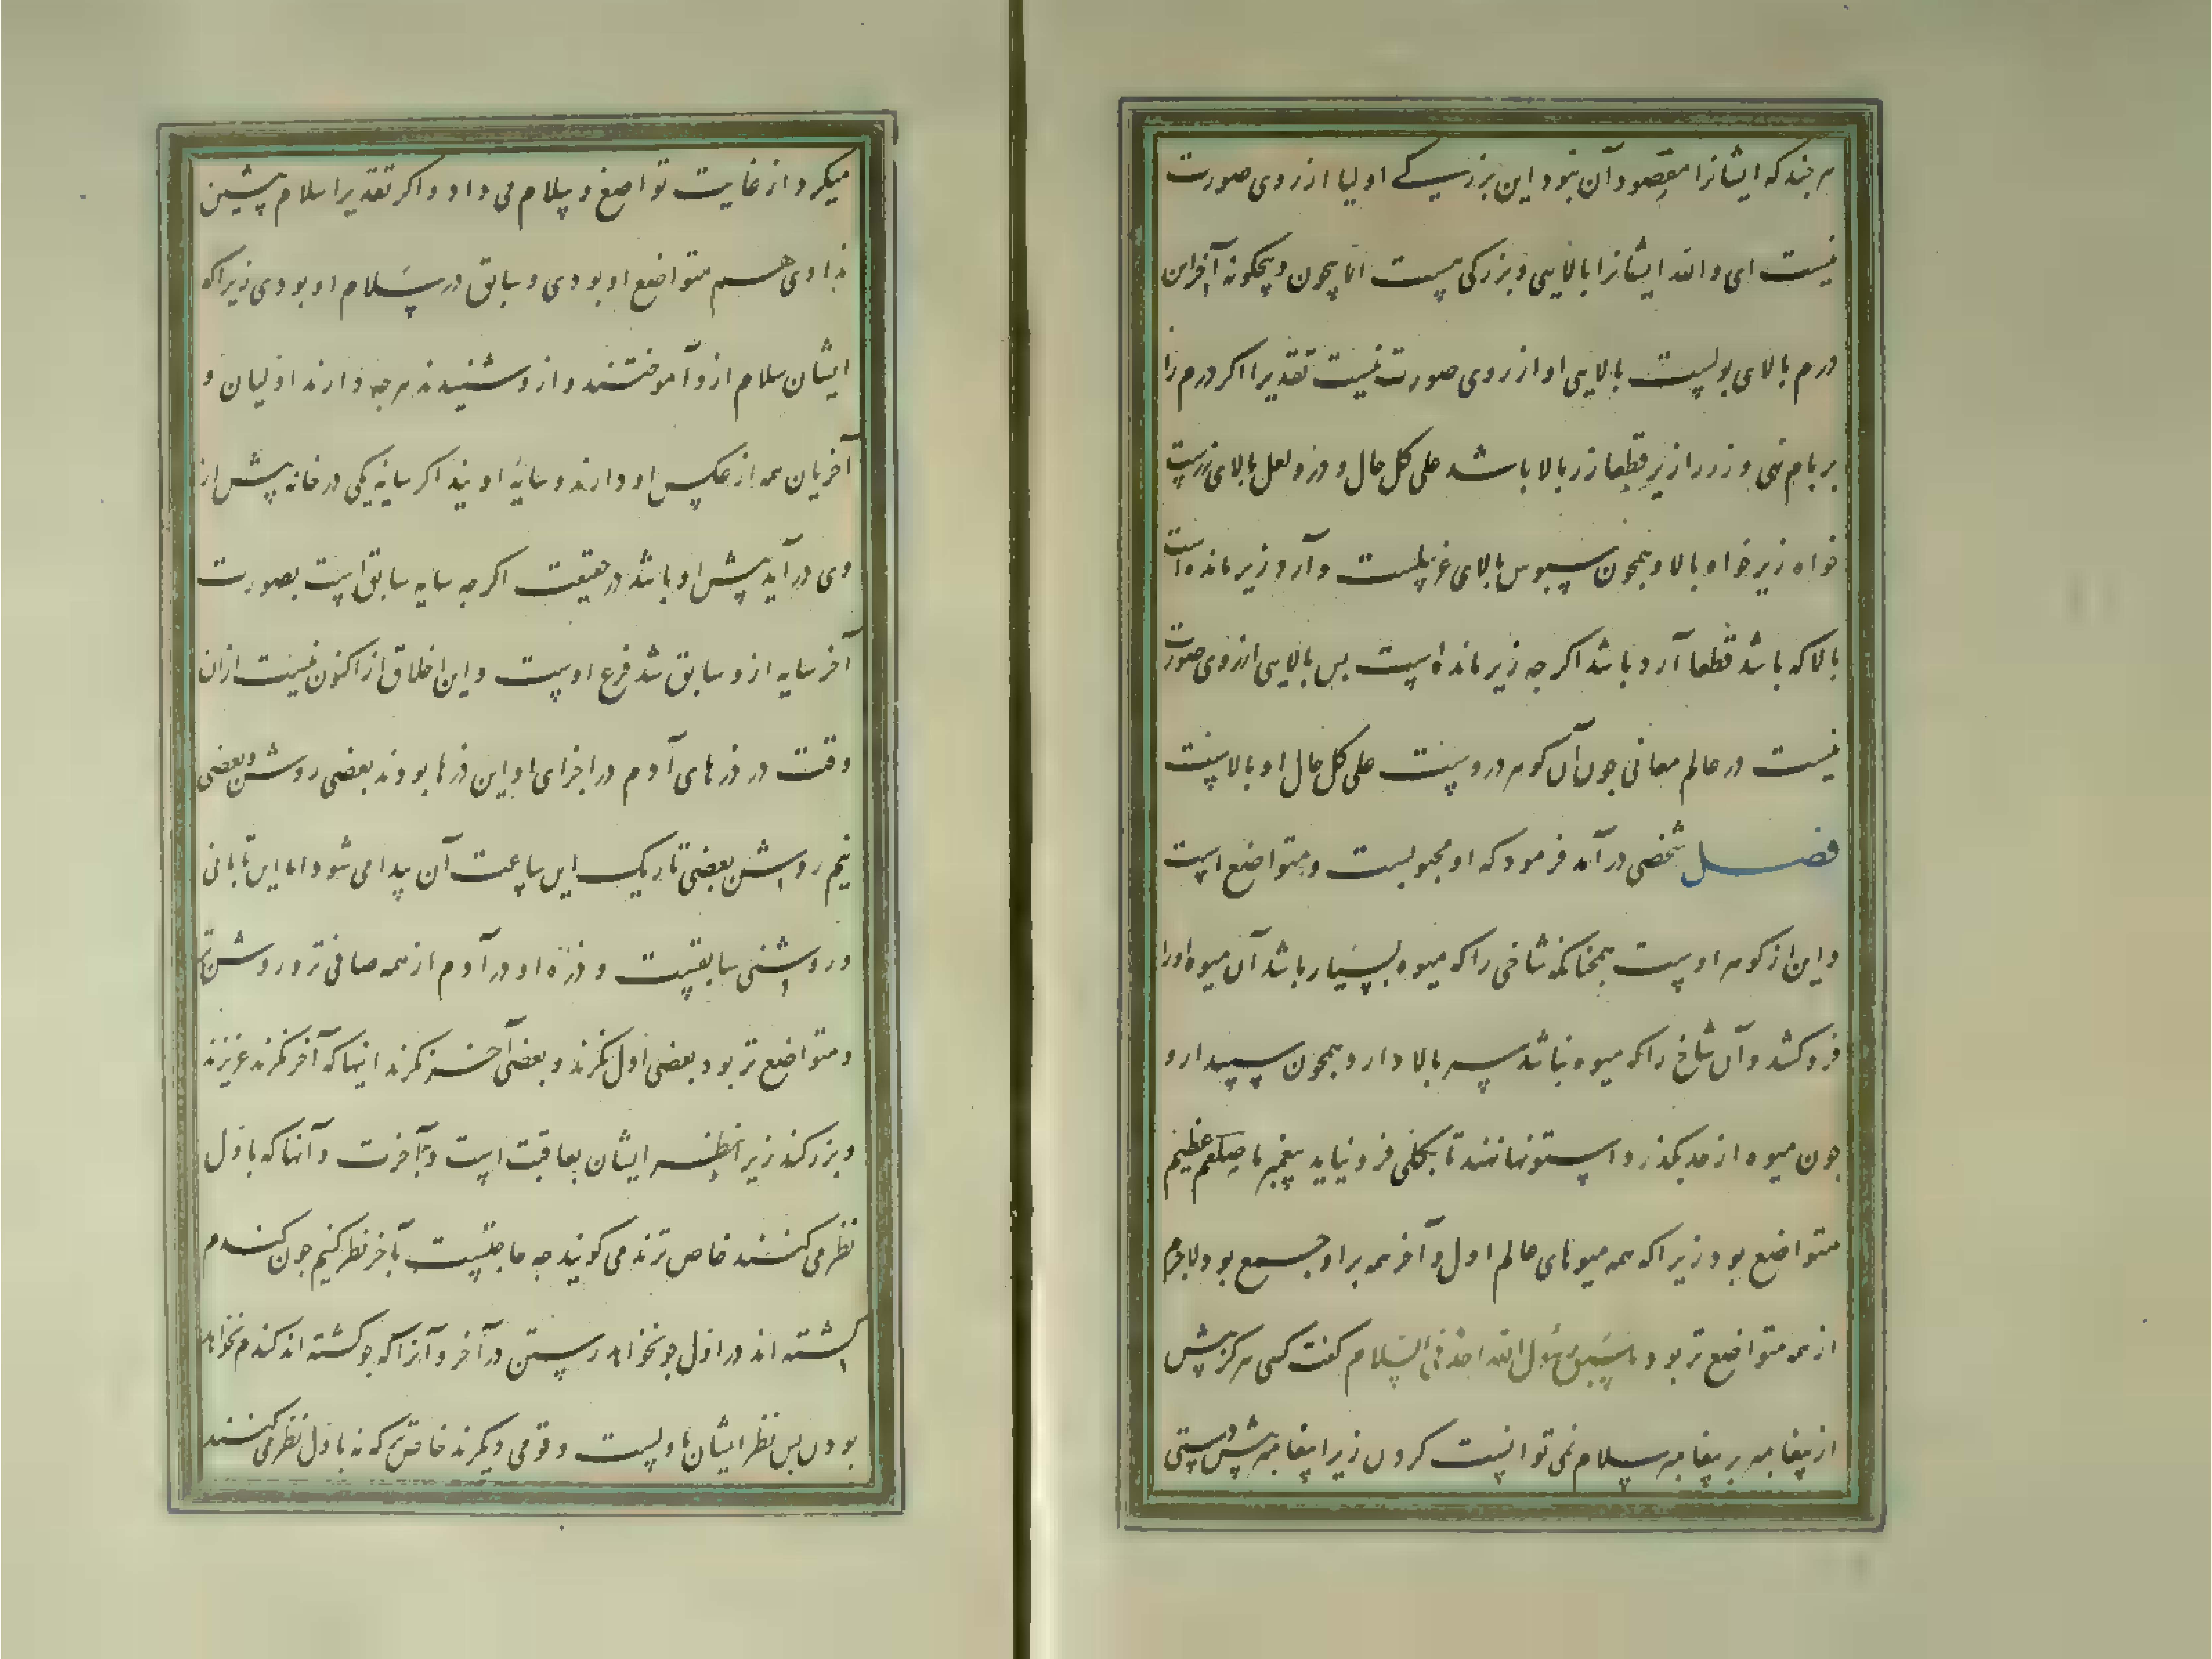 هر چند که ایشانرا مقصود آن نبود این بزرگی اولیا از روی صورت
نیست ای والله ایشانرا بالایی و بزرگی هست اما بیچون و بیچگونه آخر این
درم بالای پولست بالایی او از روی صورت نیست تقدیرا اگر درم را
بر بام نهی و زر را زیر قطعا زر بالا باشد علی کل حال و در و لعل بالای زرست
خواه زیر خواه بالا و همچون سبوس بالای غربیلست و آرد زیر مانده است
بالا که باشد قطعا آرد باشد اگر چه زیر مانده است پس بالایی از روی صورت
نیست در عالم معانی چون آن گوهر دروست علی کل حال او بالاست
فصل شخصی در آمد فرمود که او محبوبست و متواضع است
و این از گوهر اوست همچنانکه شاخی را که میوه بسیار باشد آن میوه اورا
فرو کشد و آن شاخ را که میوه نباشد سر بالا دارد همچون سپیدار و
چون میوه از حد بگذرد استونها نهند تا بکلی فرو نیاید پیغمبر ما صلعم عظیم
متواضع بود زیرا که همه میوهای عالم اول و آخر همه برو جمع بود لاجرم
از همه متواضع تر بود ما سبق رسول الله احد فی السلام گفت کسی هرگز پیش
از پیغامبر بر پیغامبر سلام نمی توانست کردن زیرا پیغامبر پیش دستی
میکرد از غایت تواضع و سلام می داد و اگر تقدیرا سلام پیشین
ندادی هم متواضع او بودی و سابق در سلام او بودی زیرا که
ایشان سلام ازو آموختند و ازو شنیدند هر چه دارند اولیان و
آخریان همه از عکس او دارند و سایهٔ اویند اگر سایه یکی در خانه پیش از
وی در آید پیش او باشد در حقیقت اگر چه سایه سابق است بصورت
آخر سایه ازو سابق شد فرع اوست و این اخلاق از اکنون نیست ازان
وقت در ذرهای آدم در اجزای او این ذرها بودند بعضی روشن و بعضی
نیم روشن بعضی تاریک این ساعت آن پیدا می شود اما این تابانی
و روشنی سابقست و ذرّه او در آدم از همه صافی تر و روشن تر
و متواضع تر بود بعضی اول نگرند و بعضی آخر نگرند اینها که آخر نگرند عزیزند
و بزرگند زیرا نظر ایشان بعاقبت است و آخرت و آنها که باول
نظر می کنند خاص ترند می گویند چه حاجتست بآخر نظر کنیم چون گندم
کشته اند در اول جو نخواهد رستن در آخر و آنرا که جو کشته اند گندم نخواهد
بودن پس نظر ایشان باولست و قومی دیگرند خاص تر که نه باول نظر می کنند